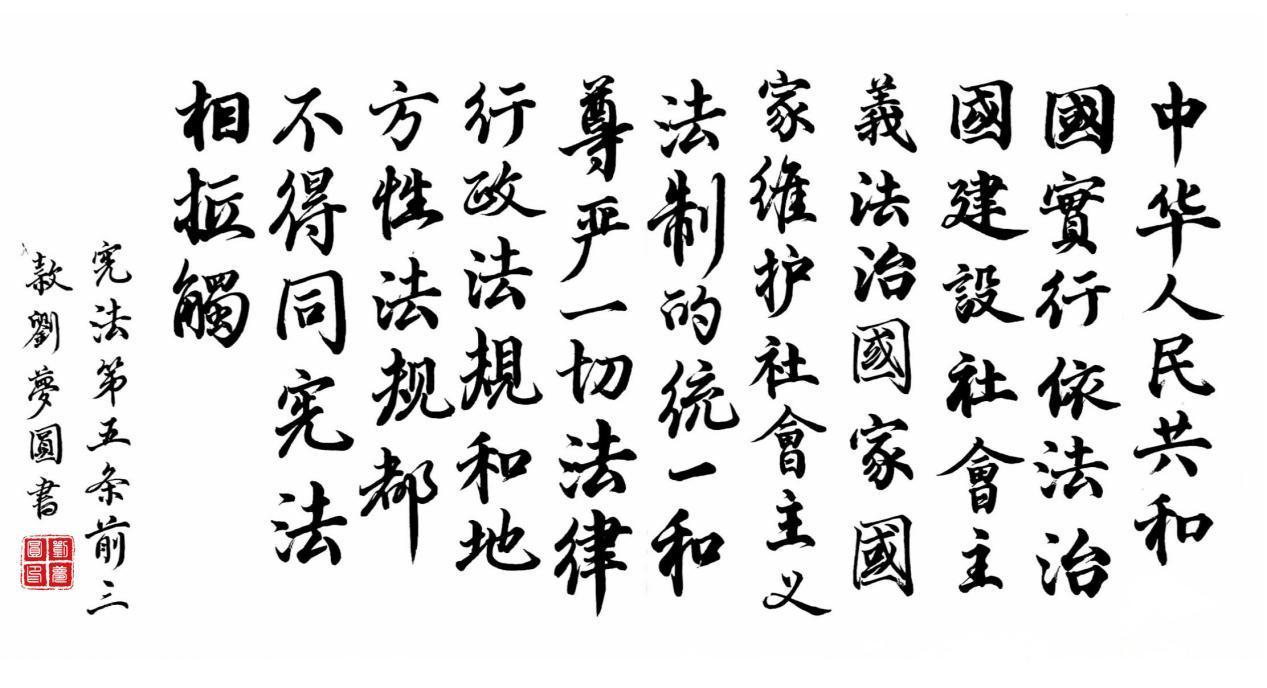 中华人民共和
國實行依法治
國建設社會主
義法治國家國
家维护社會主义
法制的统一和
尊严一切法律
行政法規和地
方性法规都
不得同宪法
相抵觸
宪法第五条前三
款劉夢圓書
劉夢圓印